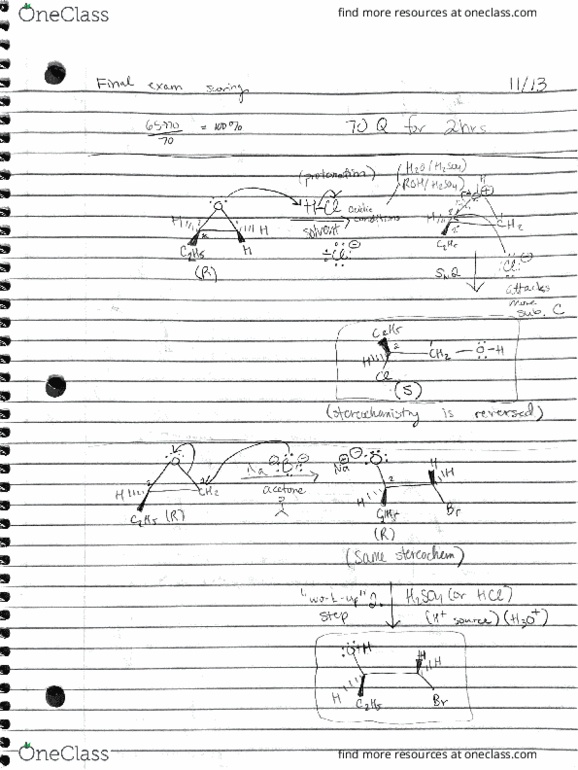 OneClass
find more resources at oneclass.com
Final exam scoring
11/13
65/70
70
= 100%
70 Q for 2hrs
(protonation)
H2O/H2SO4
ROH/H2SO4
O
H-Cl
acidic
conditions
solvent
:Cl:
H
C2H5
H
H
(R)
H
C2H5
CH2
:Cl:
SN2
attacks
more
sub. C
C2H5
2
H
CH2 — O - H
Cl
(S)
(stereochemistry is reversed)
O
H
2
CH2
C2H5 (R)
Na
acetone
Na
O
H
2
C2H5
H
H
Br
(R)
(Same stereochem)
"work-up" 2.
step
H2SO4 (or HCl)
(H+ source) (H3O+)
O+H
H
C2H5
H
H
Br
OneClass
find more resources at oneclass.com